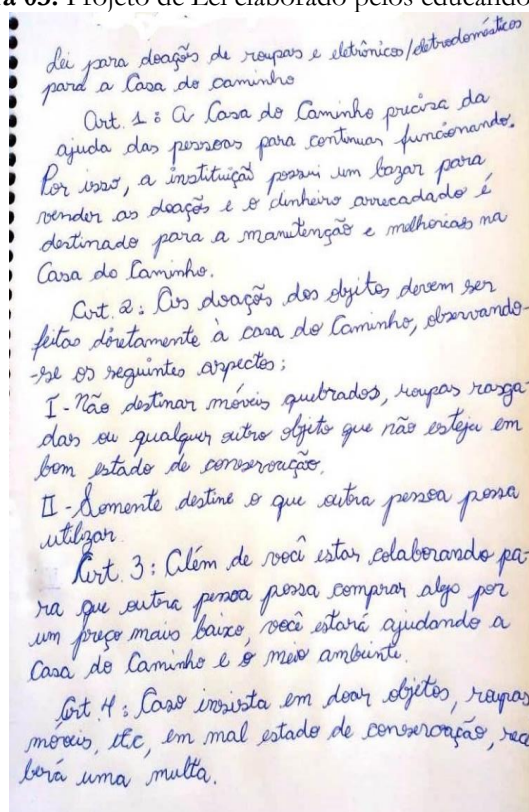 a 05: Projeto de Lei elaborado pelos educando
Lei para doações de roupas e eletrônicos/eletrodomésticos
para a Casa do caminho
Art. 1: A Casa do Caminho precisa da
ajuda das pessoas para continuar funcionando.
Por isso, a instituição possui um bazar para
vender as doações e o dinheiro arrecadado é
destinado para a manutenção e melhorias na
Casa do Caminho.
Art. 2: As doações dos objetos devem ser
feitas diretamente à casa do Caminho, observando-
-se os seguintes aspectos;
I - Não destinar móveis quebrados, roupas rasga-
das ou qualquer outro objeto que não esteja em
bom estado de conservação.
II - Somente destine o que outra pessoa possa
utilizar.
Art. 3: Além de você estar colaborando pa-
ra que outra pessoa possa comprar algo por
um preço mais baixo, você estará ajudando a
Casa do Caminho e o meio ambiente.
Art 4: Caso insista em doar objetos, roupas
móveis, etc, em mal estado de conservação, rece
berá uma multa.